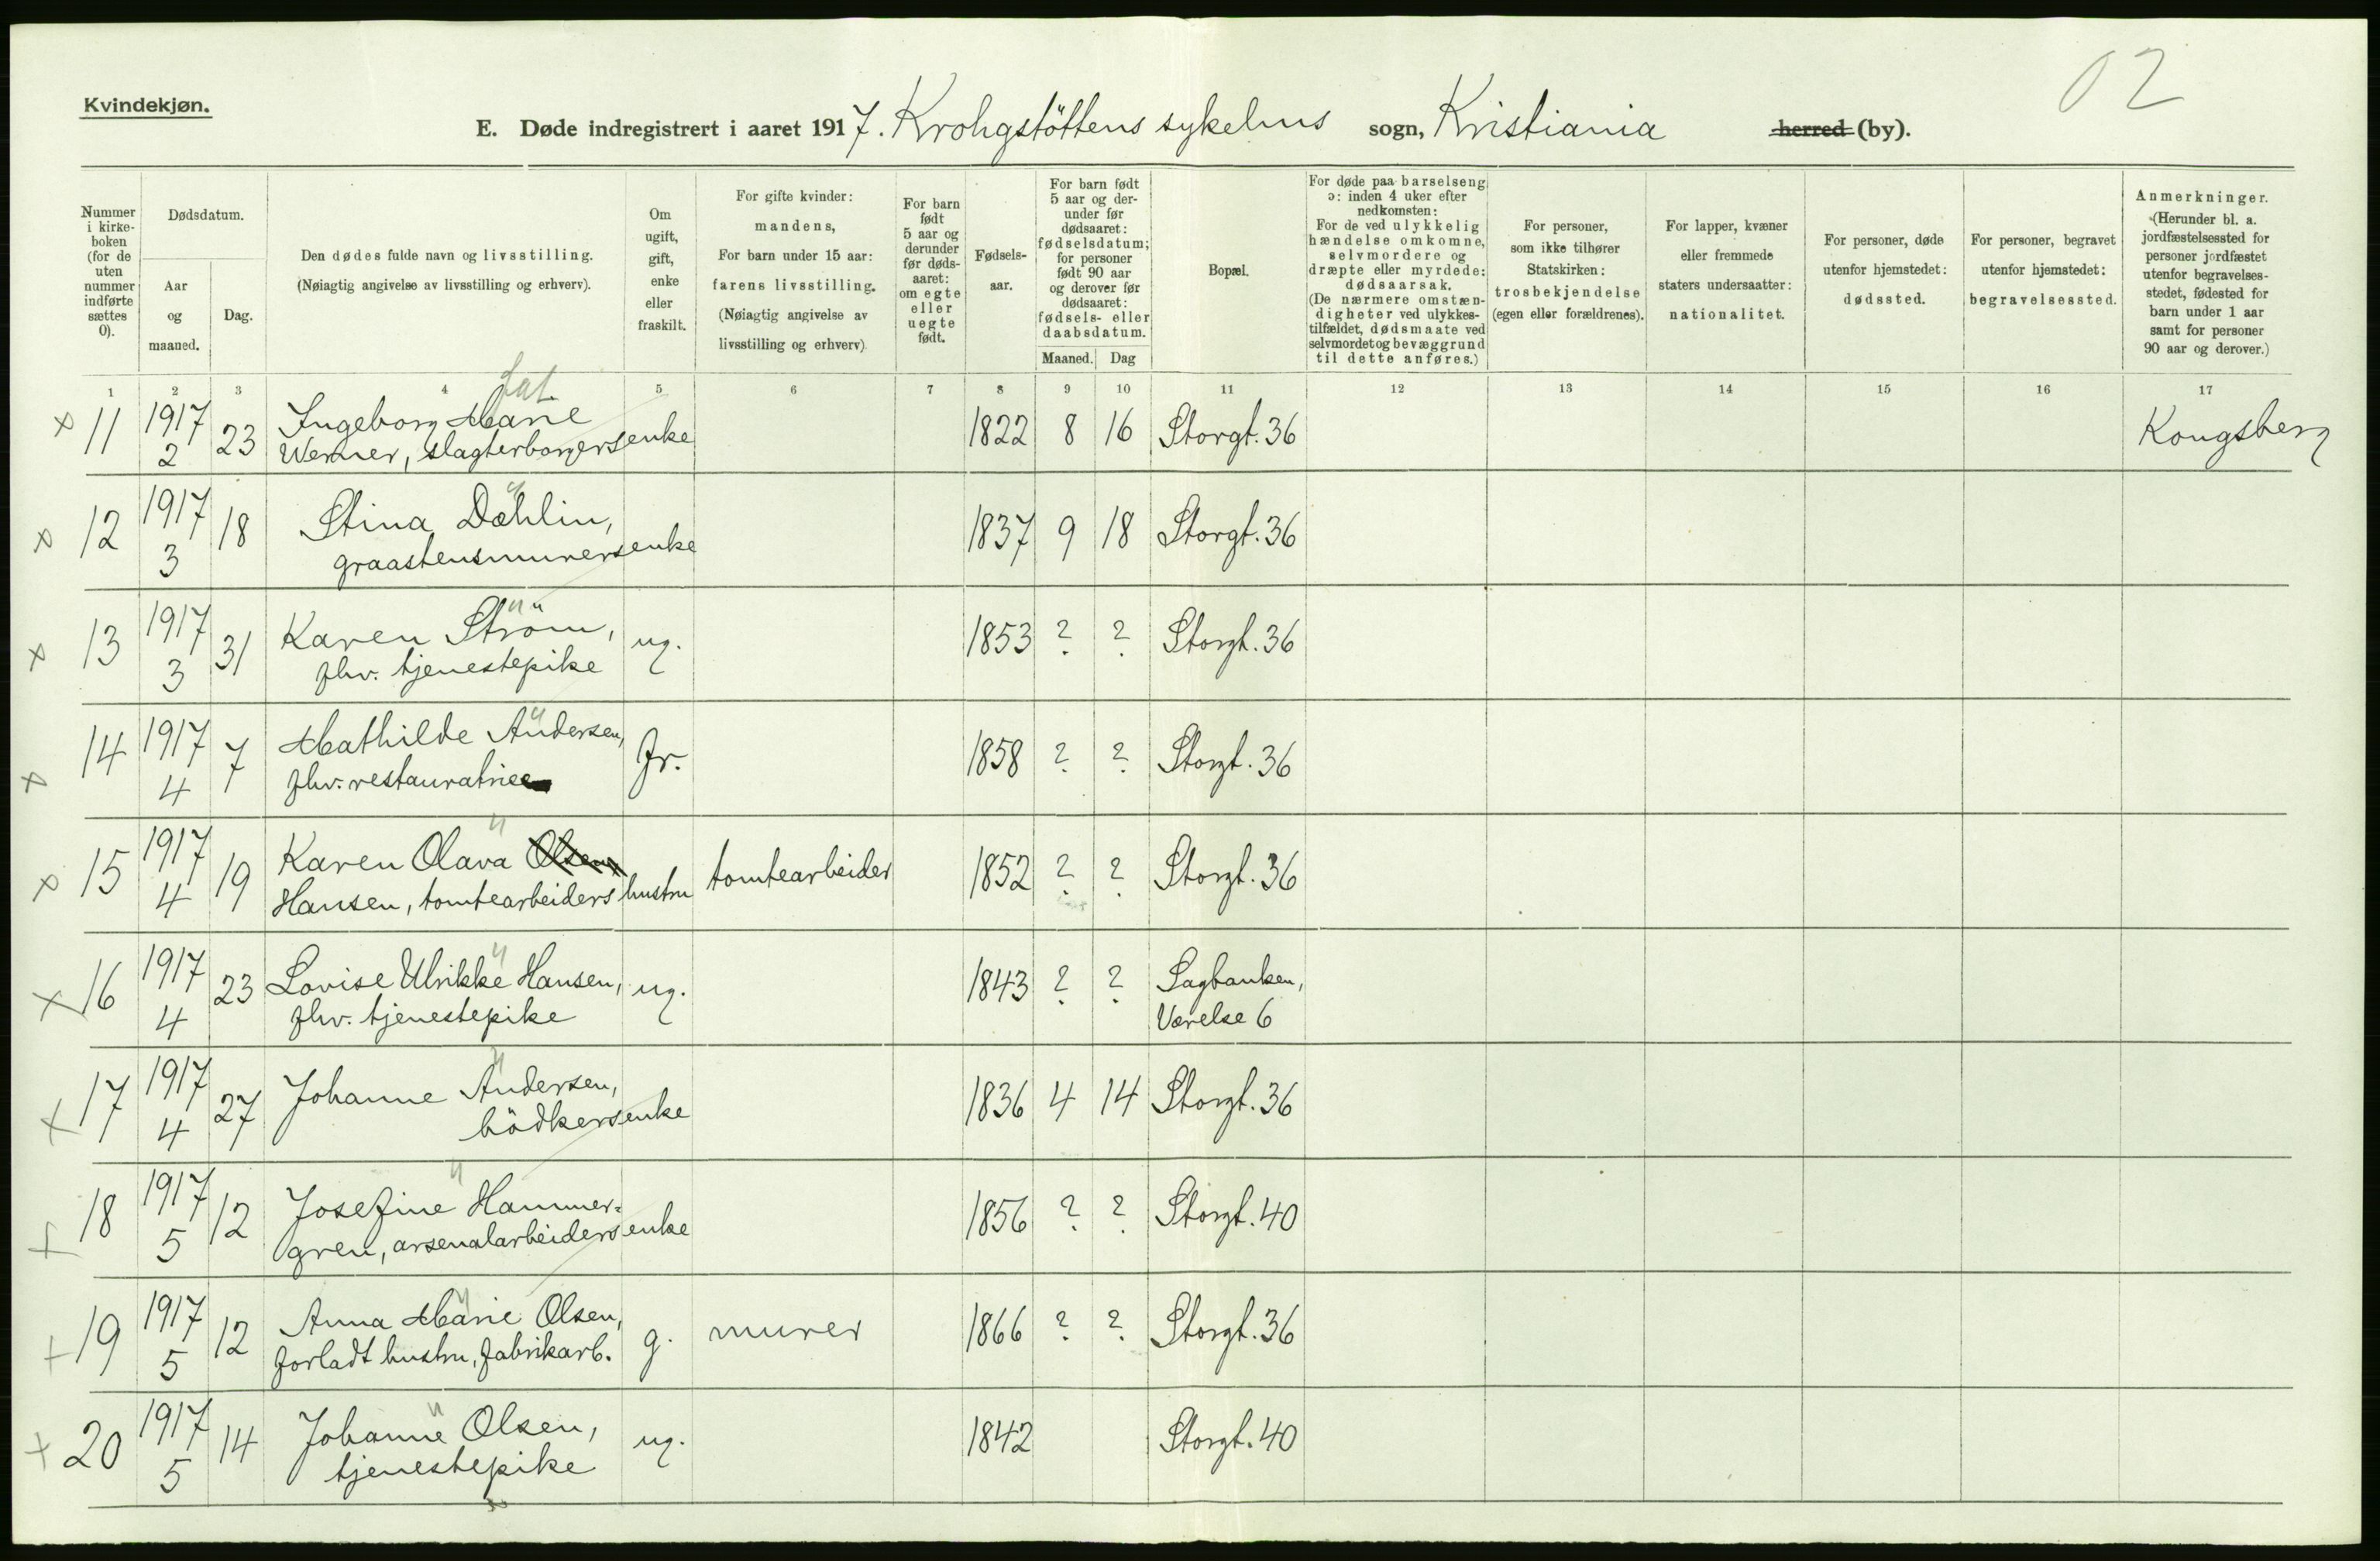 02
Kvindekjøn.
E. Døde indregistrert i aaret 1917. Krohgstöttens sykehus sogn, Kristiania herred (by).
Nummer i kirkeboken (for de uten nummer indførte sættes 0).
Dødsdatum.
Aar og maaned.
Dag.
Den dødes fulde navn og livsstilling.
(Nøiagtig angivelse av livsstilling og erhverv).
Om ugift, gift, enke eller fraskilt.
For gifte kvinder:
mandens,
For barn under 15 aar:
farens livsstilling.
(Nøiagtig angivelse av
livsstilling og erhverv)
For barn født 5 aar og derunder før dødsaaret: om egte eller uegte født.
Fødselsaar.
For barn født 5 aar og derunder før dødsaaret: fødselsdatum; for personer født 90 aar og derover før dødsaaret: fødsels- eller daabsdatum.
Maaned. Dag
Bopæl.
For døde paa barselseng ɔ: inden 4 uker efter nedkomsten: For de ved ulykkelig hændelse omkomne, selvmordere og dræpte eller myrdede: dødsaarsak. (De nærmere omstændigheter ved ulykkestilfældet, dødsmaate ved selvmordet og bevæggrund til dette anføres.)
For personer, som ikke tilhører Statskirken: trosbekjendelse (egen eller forældrenes).
For lapper, kvæner eller fremmede staters undersaatter: nationalitet.
For personer, døde utenfor hjemstedet: dødssted.
For personer, begravet utenfor hjemstedet: begravelsessted.
Anmerkninger.
(Herunder bl. a. jordfæstelsessted for personer jordfæstet utenfor begravelsesstedet, fødested for barn under 1 aar samt for personer 90 aar og derover.)
1 2 3 4 5 6 7 8 9 10 11 12 13 14 15 16 17
x 11 1917 2 23 Ingeborg Marie
Werner, slagterborgersenke 1822 8 16 Storgt. 36 Kongsberg
x 12 1917 3 18 Stina Dæhlin,
graastensmurersenke 1837 9 18 Storgt. 36
x 13 1917 3 31 Karen Ström,
fhv. tjenestepike ug. 1853 ? ? Storgt. 36
x 14 1917 4 7 Mathilde Andersen,
fhv. restauratrice fr. 1858 ? ? Storgt. 36
x 15 1917 4 19 Karen Olava Olsen
Hansen, tomtearbeiders hustru tomtearbeider 1852 ? ? Storgt. 36
x 16 1917 4 23 Lovise Ulrikke Hansen,
fhv. tjenestepike ug. 1843 ? ? Sagbanken,
Værelse 6
x 17 1917 4 27 Johanne Andersen,
bödkersenke 1836 4 14 Storgt. 36
x 18 1917 5 12 Josefine Hammer=
gren, arsenalarbeidersenke 1856 ? ? Storgt. 40
+ 19 1917 5 12 Anna Marie Olsen,
forladt hustru, fabrikarb. g. murer 1866 ? ? Storgt. 36
+ 20 1917 5 14 Johanne Olsen,
tjenestepike ug. 1842 Storgt. 40